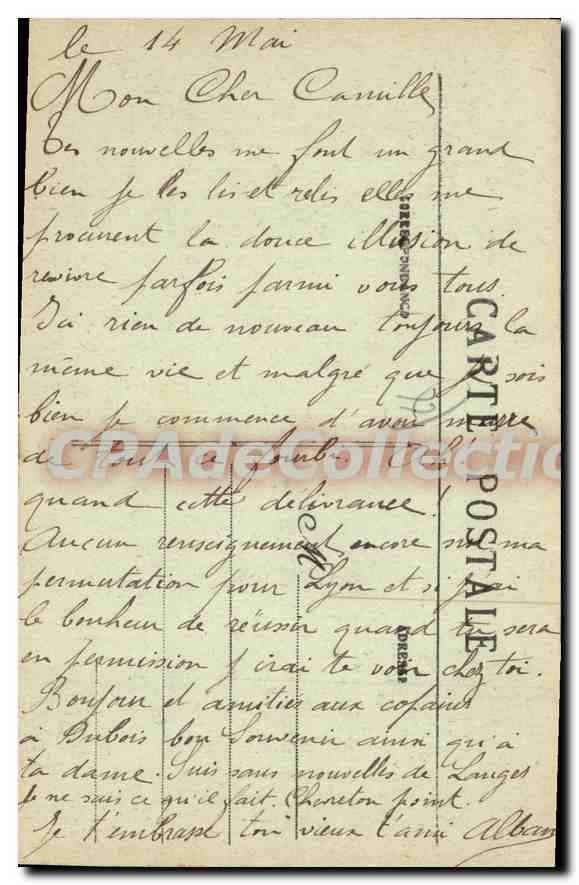 le 14 Mai
Mon Cher Camille
Tes nouvelles me font un grand
bien je les lis et relis elles me
procurent la douce illusion de
revivre parfois parmi vous tous.
Ici rien de nouveau toujours la
même vie et malgré que je sois
bien je commence d'avoir marre
de tout ce fourbi. Ah!
quand cette délivrance!
Aucun renseignement encore sur ma
permutation pour Lyon et si j'ai
le bonheur de réussir quand tu sera
en permission j'irai te voir chez toi.
Bonjour et amitiés aux copains
à Dubois bon Souvenir ainsi qu'à
ta dame. Suis sans nouvelles de Langes
Je ne sais ce qu'il fait. Chareton point.
Je t'embrasse ton vieux t'ami Alban
CARTE POSTALE
CORRESPONDANCE
ADRESSE
CPAdeCollection